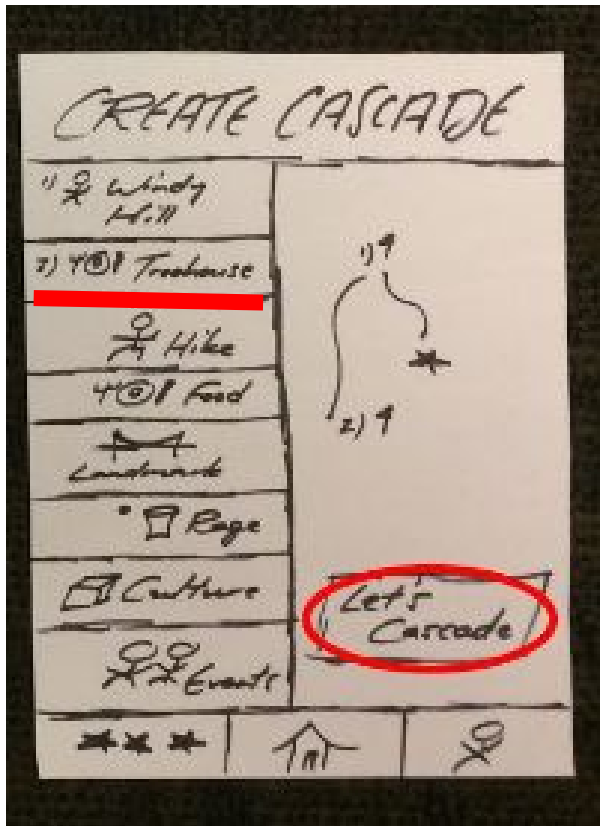 CREATE CASCADE
1) Windy
Hill
2) Treehouse
Hike
Food
Landmark
Rage
Culture
Events
1)
2)
Let's
Cascade